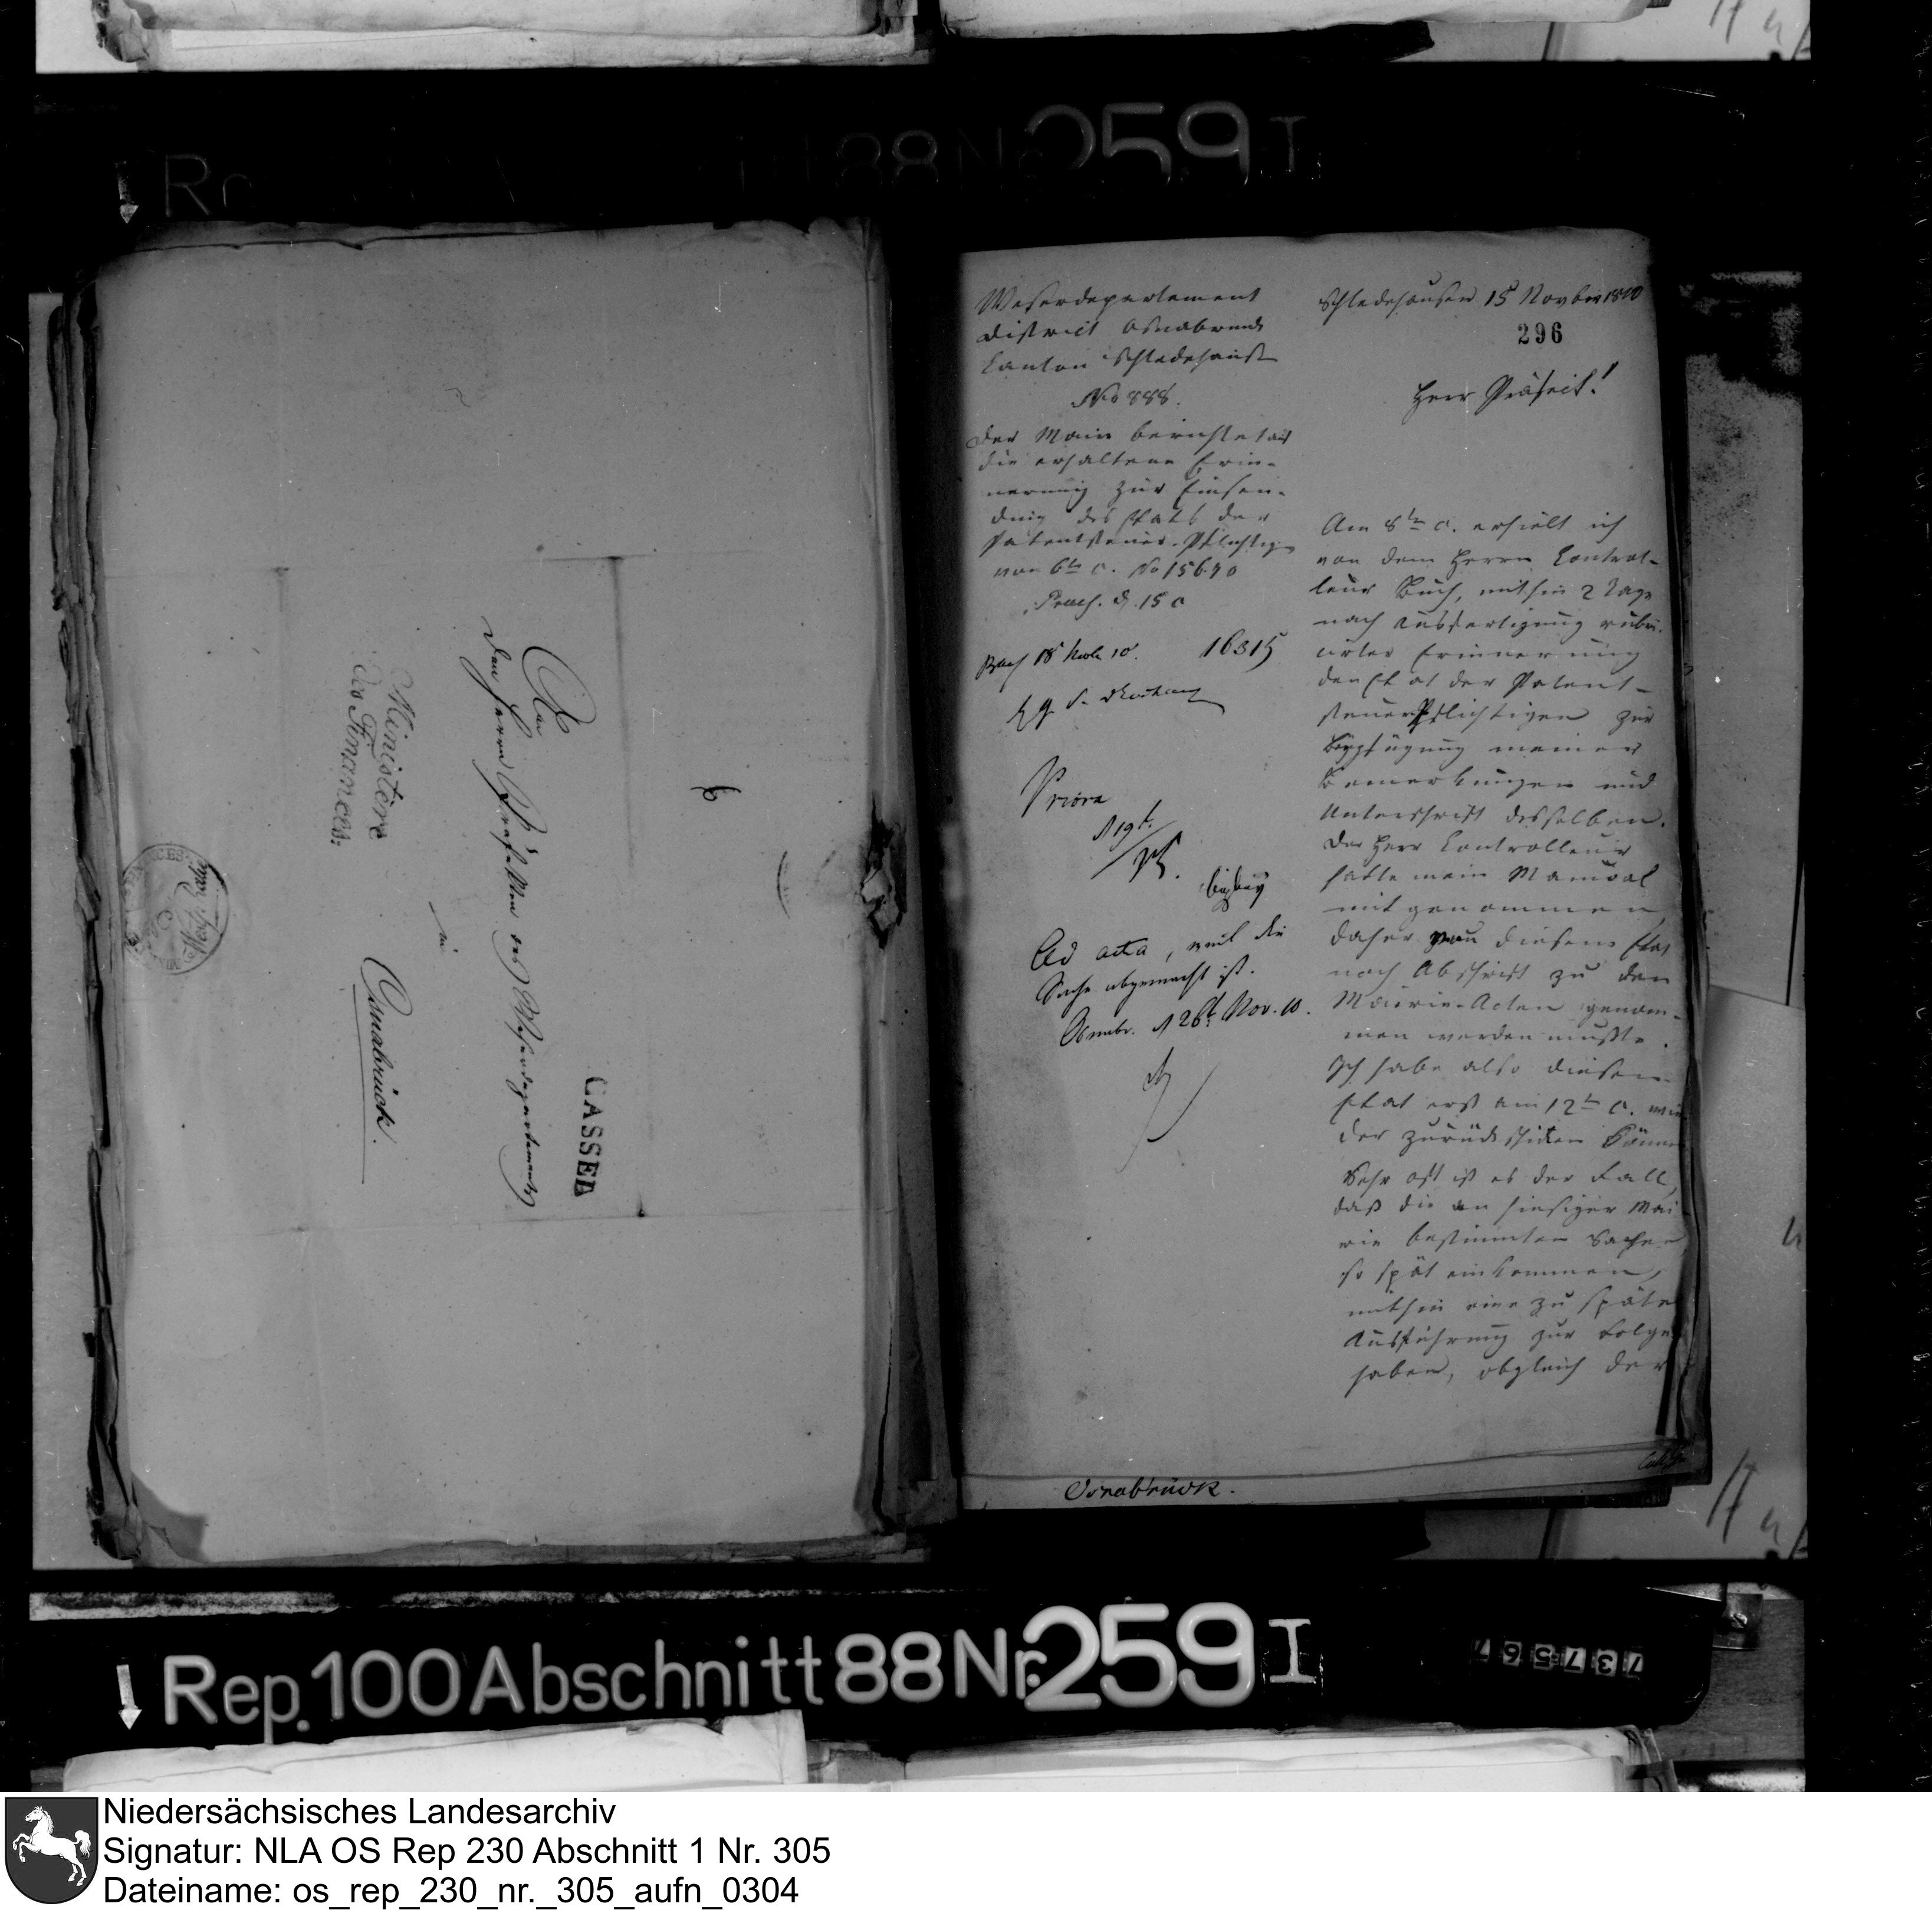 259 I
An
den Herrn Präfekten des Weserdepartements
in
Osnabrück.
CASSEL
Ministère
des Finances.
Weserdepartement
District Osnabrück
Canton Schledehausen
No 888.
Der Maire berichtet auf
die erhaltene Erin-
nerung zur Einsen-
dung des Etats der
Patentsteuer-Pflichtigen
vom 6ten c. No 15690
Praes. d. 15 c
16315
Priora
Ad acta, weil die
Sache abgemacht ist.
Osnabr. d 26t Nov. 10.
Schledehausen 15 Novber 1810
296
Herr Präfect!
Am 8ten c. erhielt ich
von dem Herrn Control-
leur Buch, mithin 2 Tage
nach Ausfertigung rubri-
cirter Erinnerung
den Etat der Patent-
steuer Pflichtigen zur
Beyfügung meiner
Bemerkungen und
Unterschrift desselben.
Der Herr Controlleur
hatte mein Manual
mit genommen,
daher von diesem Etat
noch Abschrift zu den
Mairie-Acten genom-
men werden mußte.
Ich habe also diesen
Etat erst am 12ten c. wie
der zurückschicken können
Sehr oft ist es der Fall,
daß die an hiesiger Mai
rie bestimmten Sachen
so spät einkommen,
mithin eine zu späte
Ausführung zur Folge
haben, obgleich der
Osnabrück.
Rep. 100 Abschnitt 88 Nr. 259 I
737567
Niedersächsisches Landesarchiv
Signatur: NLA OS Rep 230 Abschnitt 1 Nr. 305
Dateiname: os_rep_230_nr._305_aufn_0304